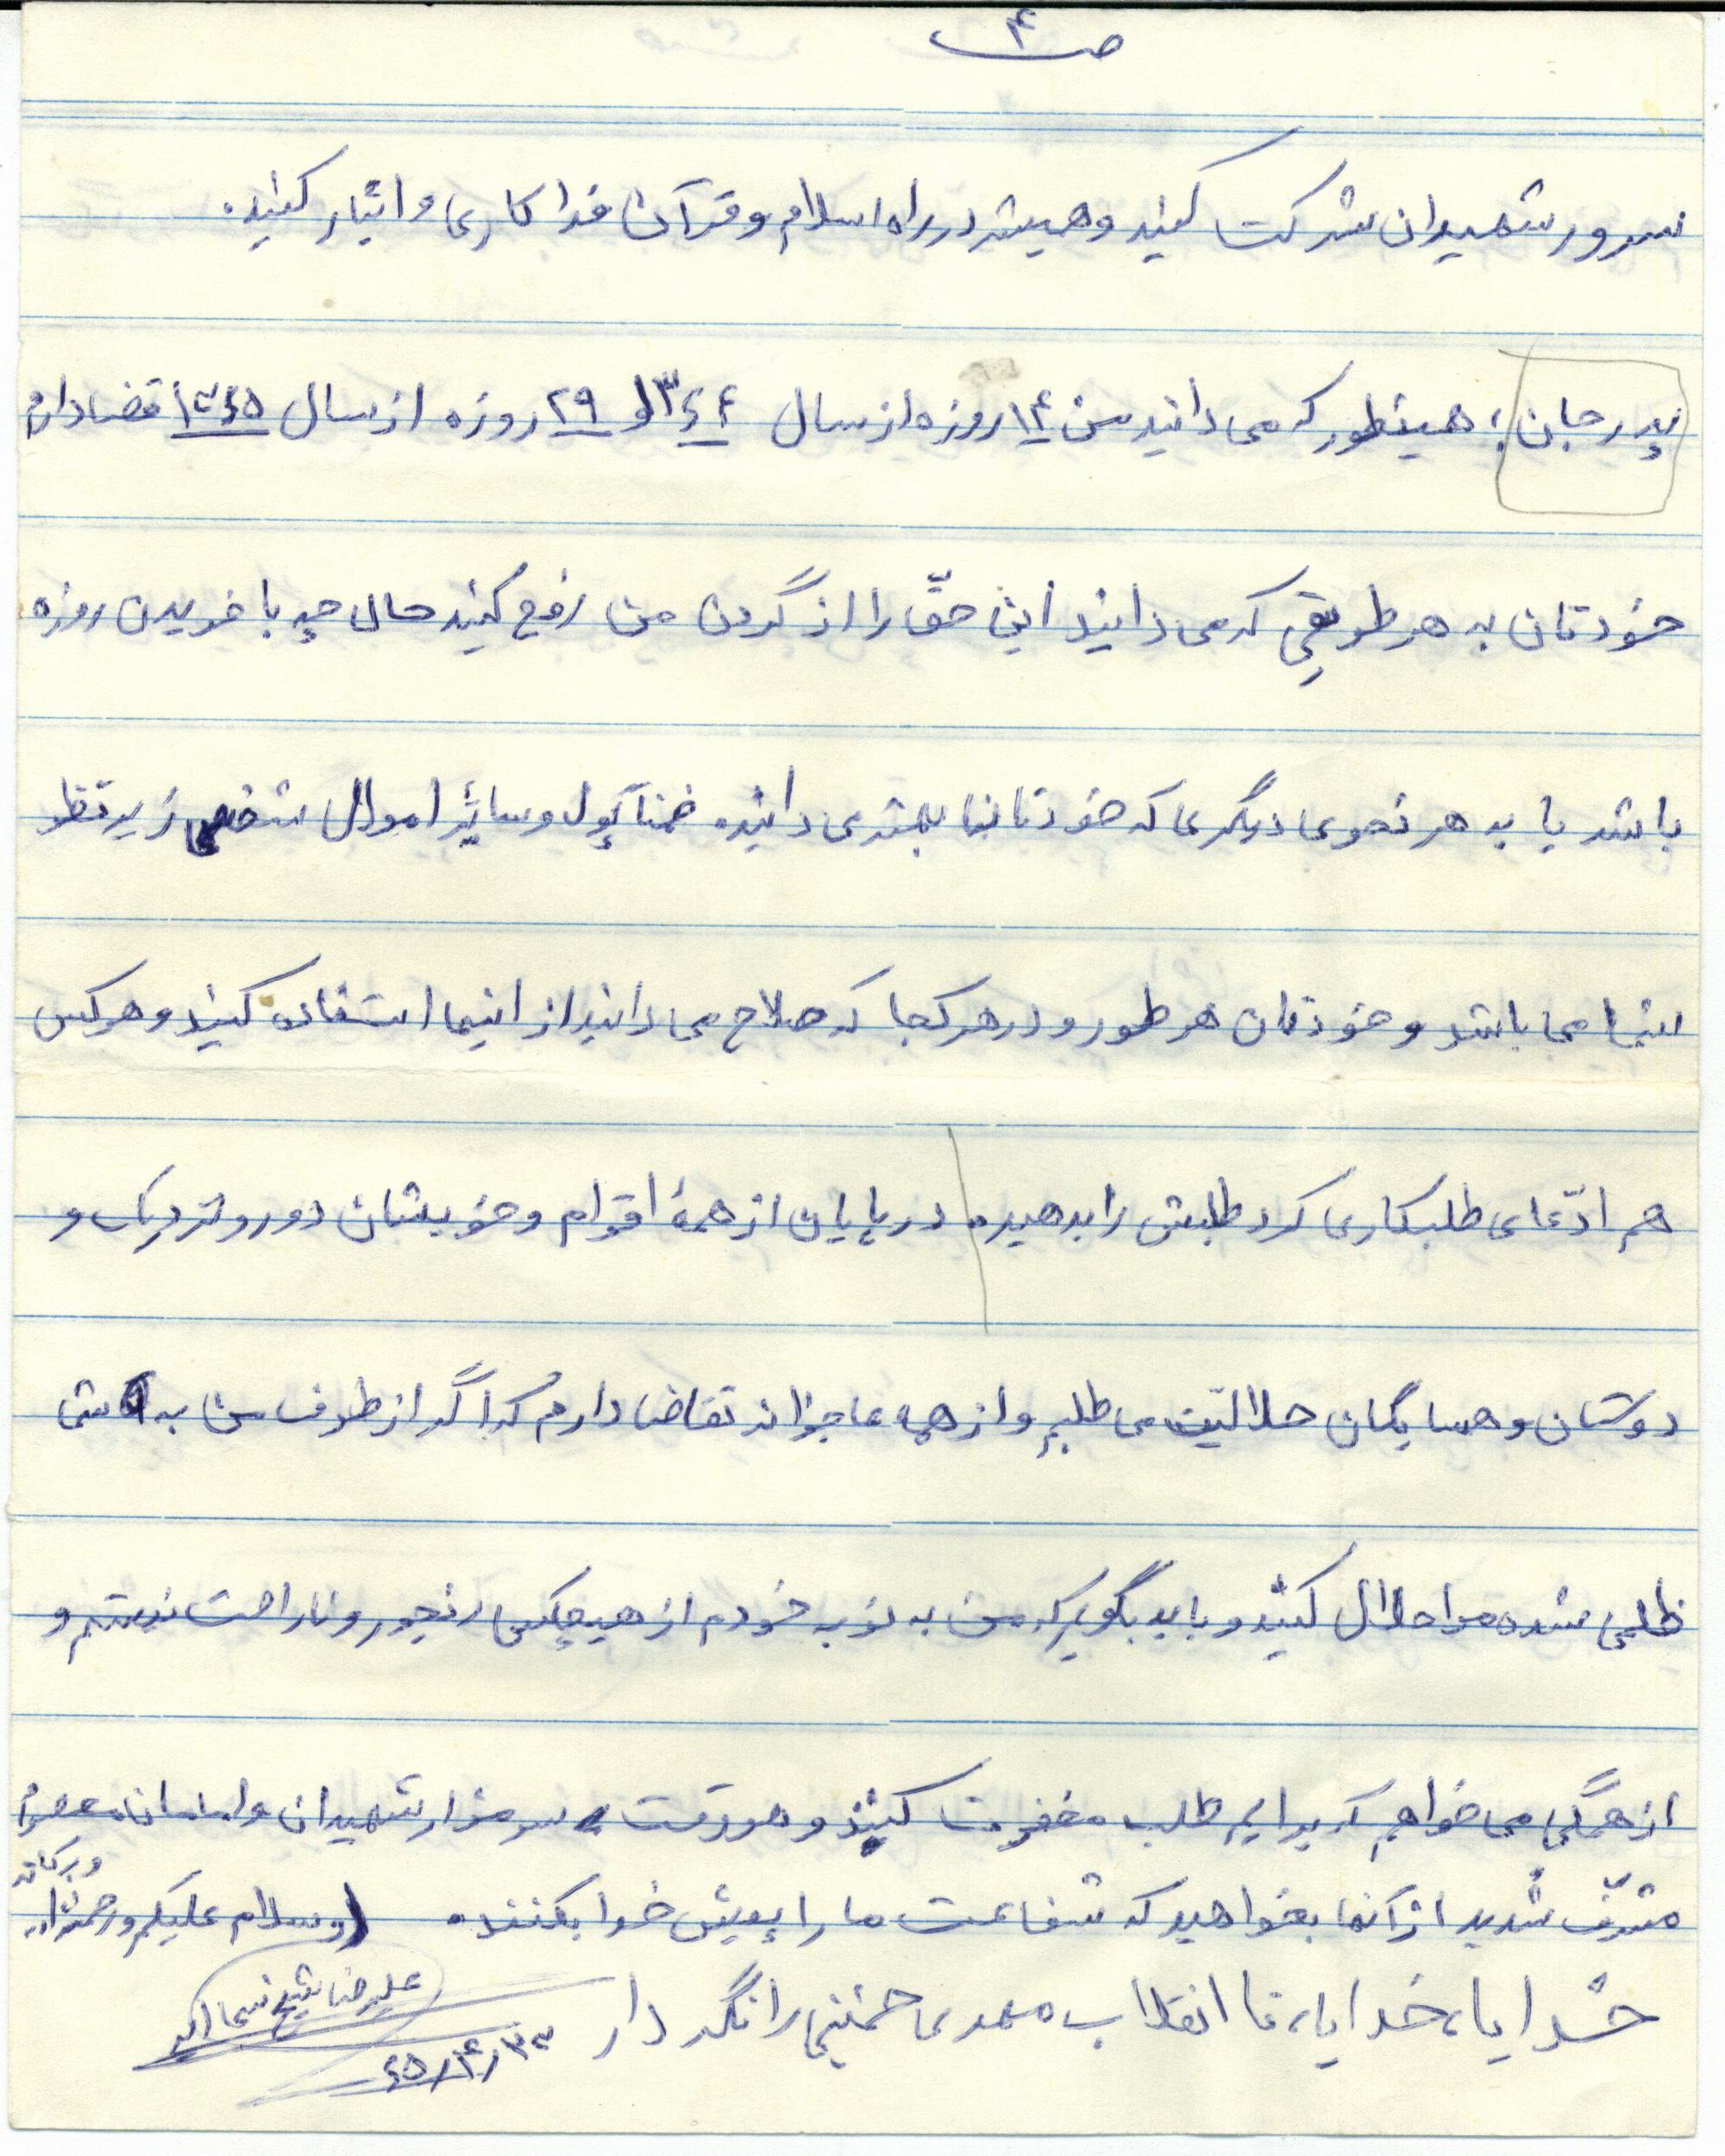 ص ۴
سرور شهیدان شرکت کنید و همیشه در راه اسلام و قرآن فداکاری و ایثار کنید.
پدر جان؛ همینطور که می دانید من ۱۴ روزه از سال ۱۳۶۴ و ۲۹ روزه از سال ۱۳۶۵ قضا دارم
خودتان به هر طریقی که می دانید این حقّ را از گردن من رفع کنید حال چه با خریدن روزه
باشد یا به هر نحوی دیگری که خودتان بهتر می دانید. ضمناً پول و سائر اموال شخصی زیر نظر
شما می باشد و خودتان هر طور و در هر کجا که صلاح می دانید از اینها استفاده کنید و هر کس
هم ادّعای طلبکاری کرد طلبش را بدهید. در پایان از همهٔ اقوام و خویشان دور و نزدیک و
دوستان و همسایگان حلالیّت می طلبم و از همه عاجزانه تقاضا دارم که اگر از طرف من به شما
ظلمی شده مرا حلال کنید و باید بگویم که من به نوبه خودم از هیچکس رنجور و ناراحت نیستم و
از همگی می خواهم که برایم طلب مغفرت کنید و هر وقت به سر مزار شهیدان و امامان معصوم
مشرّف شدید از آنها بخواهید که شفاعت ما را پیش خدا بکنند. والسلام علیکم و رحمةالله
و برکاته
خدایا، خدایا، تا انقلاب مهدی خمینی را نگه دار
علیرضا شیخ
۶۵/۴/۲۳